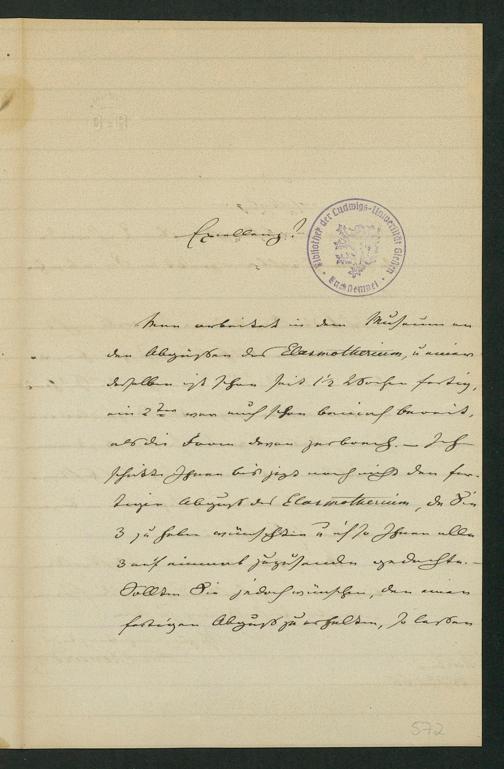 Excellenz!
Bibliothek der Ludwigs-Universität Giessen
Man arbeitet in dem Museum an
den Abgüßen des Elasmotherium, u einer
derselben ist schon seit 1½ Wochen fertig,
ein 2ter war auch schon beinah bereit,
als die Form davon zerbrach. — Ich
schickte Ihnen bis jezt noch nicht den fer-
tigen Abguß des Elasmotherium, da Sie
3 zu haben wünschten u ich so Ihnen alle
3 auf einmal zuzusenden gedachte. —
Sollten Sie jedoch wünschen, den einen
fertigen Abguß zu erhalten, so lassen
572